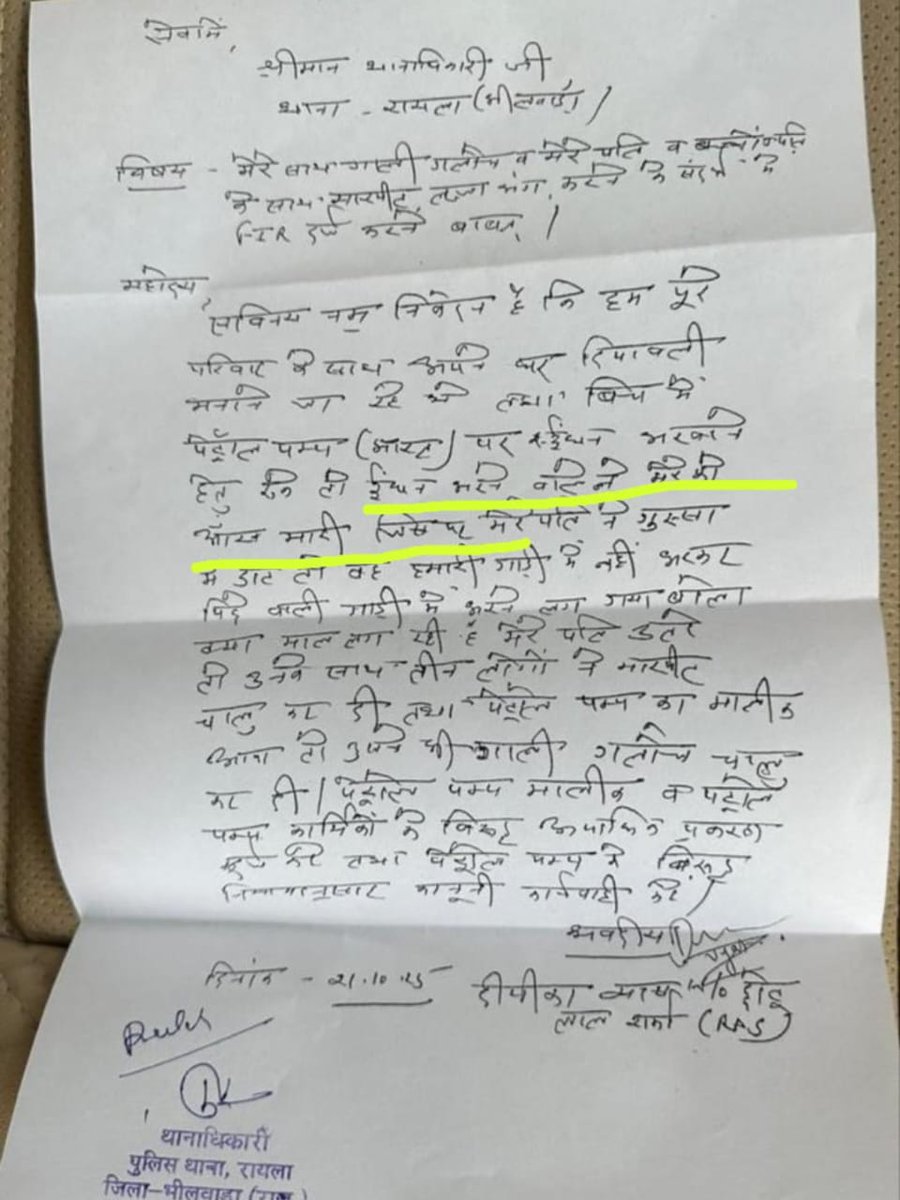 सेवामें,
श्रीमान थानाधिकारी जी
थाना - रायला (भीलवाड़ा) /
विषय - मेरे साथ गाली गलौच व मेरे पति व
के साथ मारपीट, लज्जा भंग, करने के संदर्भ में
FIR दर्ज करने बाबत् /
महोदय,
सविनय नम्र निवेदन है कि हम पूरे
परिवार के साथ अपने घर दिपावली
मनाने जा रहे थे तथा बिच में
पेट्रोल पम्प पर ईंधन भरवाने
हेतु रुके तो ईंधन भरने वाले ने मेरे को
आँख मारी जिस पर मेरे पति ने गुस्सा
में डाट तो वह हमारी गाड़ी में नहीं भरकर
पिछे वाली गाड़ी में भरने लग गया बोला
क्या माल लग रही है मेरे पति उतरे
तो उनके साथ तीन लोगों ने मारपीट
चालु कर दी तथा पेट्रोल पम्प का मालीक
आया तो उसने भी गाली गलौच चालु
कर दी / पेट्रोल पम्प मालीक व पेट्रोल
पम्प कार्मिकों के विरूद्ध प्रकरण
दर्ज करे तथा पेट्रोल पम्प के विरूद्ध
नियमानुसार कानूनी कार्यवाही करे /
भवदीया
दिनांक - 21.10.25
दीपीका व्यास W/o छोटू
लाल शर्मा (RAS)
थानाधिकारी
पुलिस थाना, रायला
जिला-भीलवाड़ा (राज.)